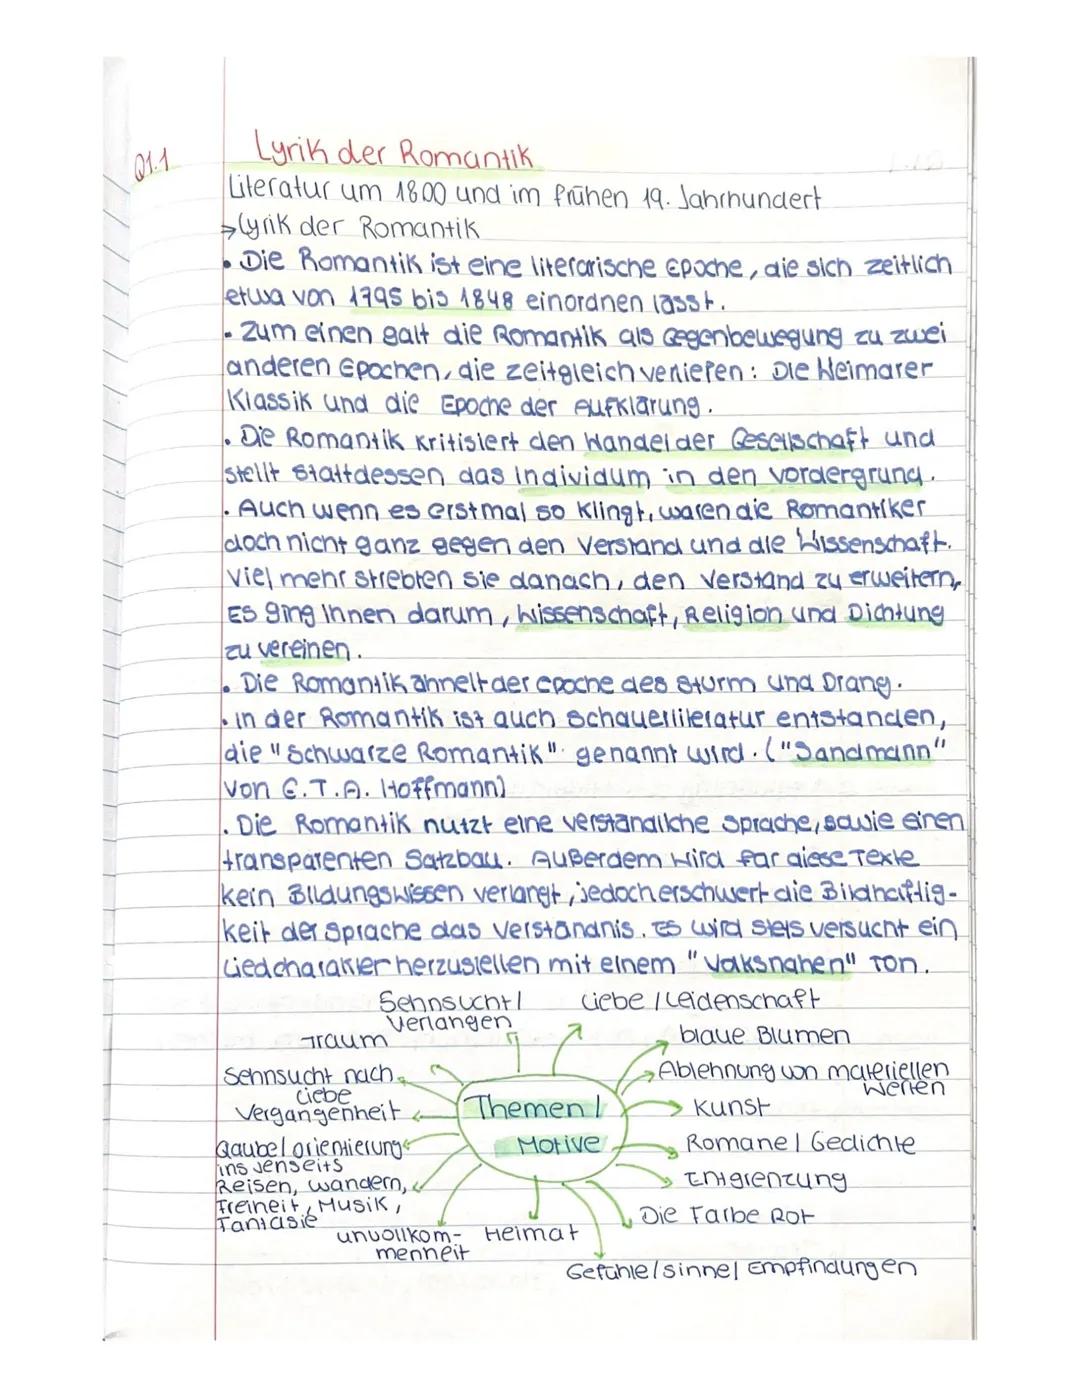 Q1.1
Lyrik der Romantik
Literatur um 1800 und im frühen 19. Jahrhundert
→ Lyrik der Romantik
• Die Romantik ist eine literarische Epoche, die sich zeitlich
etwa von 1795 bis 1848 einordnen lässt.
• Zum einen galt die Romantik als Gegenbewegung zu zwei
anderen Epochen, die zeitgleich verliefen: Die Weimarer
Klassik und die Epoche der Aufklärung.
• Die Romantik kritisiert den Wandel der Gesellschaft und
stellt stattdessen das Individum in den vordergrund.
• Auch wenn es erstmal so klingt, waren die Romantiker
doch nicht ganz gegen den Verstand und die Wissenschaft.
Viel mehr strebten sie danach, den Verstand zu erweitern,
Es ging Ihnen darum, Wissenschaft, Religion und Dichtung
zu vereinen.
• Die Romantik ähnelt der Epoche des Sturm und Drang.
• in der Romantik ist auch Schauerliteratur entstanden,
die "Schwarze Romantik" genannt wird. ("Sandmann"
von E.T.A. Hoffmann)
• Die Romantik nutzt eine verständliche Sprache, sowie einen
transparenten Satzbau. Außerdem wird für diese Texte
kein Bildungswissen verlangt, jedoch erschwert die Bildhaftig-
keit der Sprache das Verständnis. Es wird stets versucht ein
Liedcharakter herzustellen mit einem "Volksnahen" Ton.
Sehnsucht/ Liebe / Leidenschaft
Verlangen
Traum blaue Blumen
Sehnsucht nach Ablehnung von materiellen
Liebe Werten
Vergangenheit Themen / Kunst
Motive
Gaube/orientierung Romane / Gedichte
ins Jenseits
Reisen, wandern, Entgrenzung
Freiheit, Musik,
Fantasie Die Farbe Rot
unvollkom- Heimat
menheit
Gefühle/sinne/ Empfindungen